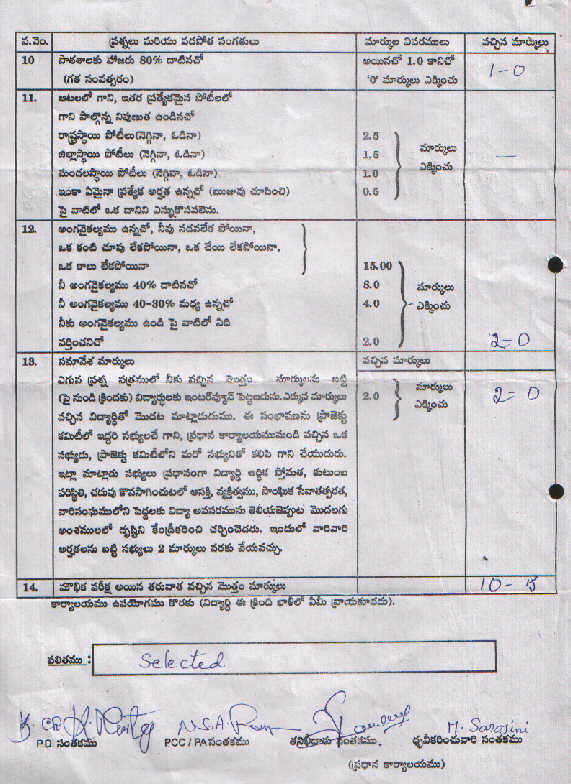 వ.నెం. ప్రశ్నలు మరియు పడపోత సంగతులు మార్కుల వివరములు వచ్చిన మార్కులు
10 పాఠశాలకు హాజరు 80% దాటినచో అయినచో 1.0 కానిచో 1-0
(గత సంవత్సరం) '0' మార్కులు ఎక్కించు
11. ఆటలలో గాని, ఇతర ప్రత్యేకమైన పోటీలలో
గాని పాల్గొన్న నిపుణత ఉండినచో
రాష్ట్రస్థాయి పోటీలు(నెగ్గినా, ఓడినా) 2.5 మార్కులు
జిల్లాస్థాయి పోటీలు (నెగ్గినా, ఓడినా) 1.5 ఎక్కించు —
మండలస్థాయి పోటీలు (నెగ్గినా, ఓడినా) 1.0
ఇంకా ఏమైనా ప్రత్యేక అర్హత ఉన్నచో (ఋజువు చూపించి) 0.5
పై వాటిలో ఒక దానిని ఎన్నుకొనవలెను.
12. అంగవైకల్యము ఉన్నచో, నీవు నడవలేక పోయినా,
ఒక కంటి చూపు లేకపోయినా, ఒక చేయి లేకపోయినా,
ఒక కాలు లేకపోయినా 15.00
నీ అంగవైకల్యము 40% దాటినచో 8.0 మార్కులు
నీ అంగవైకల్యము 40-30% మధ్య ఉన్నచో 4.0 ఎక్కించు
నీకు అంగవైకల్యము ఉండి పై వాటిలో ఏది
వర్తించనిచో 2.0 2-0
13. సమావేశ మార్కులు వచ్చిన మార్కులు
ఎగువ ప్రశ్న పత్రములో నీకు వచ్చిన మొత్తం మార్కులను బట్టి మార్కులు
(పై నుండి క్రిందకు) విద్యార్థులకు ఇంటర్వ్యూన్ పెట్టబడును.ఎక్కువ మార్కులు 2.0 ఎక్కించు 2-0
వచ్చిన విద్యార్థితో మొదట మాట్లాడుదుము. ఈ సంభాషణను ప్రాజెక్టు
కమిటీలో ఇద్దరు సభ్యులచే గాని, ప్రధాన కార్యాలయమునుండి వచ్చిన ఒక
సభ్యుడు, ప్రాజెక్టు కమిటీలోని మరో సభ్యునితో కలిపి గాని చేయుదురు.
ఇట్లా మాట్లాడు సభ్యులు ప్రధానంగా విద్యార్థి ఆర్థిక స్తోమత, కుటుంబ
పరిస్థితి, చదువు కొనసాగించుటలో ఆసక్తి, వ్యక్తిత్వము, సాంఘిక సేవాతత్పరత,
వారిసంఘములోని పెద్దలకు విద్యా అవసరమును తెలియజెప్పుట మొదలగు
అంశములలో దృష్టిని కేంద్రీకరించి చర్చించెదరు. ఇందులో వారివారి
అర్హతలను బట్టి సభ్యులు 2 మార్కులు వరకు వేయవచ్చు.
14. మౌఖిక పరీక్ష అయిన తరువాత వచ్చిన మొత్తం మార్కులు 10-5
కార్యాలయము ఉపయోగము కొరకు (విద్యార్థి ఈ క్రింది బాక్‌లో ఏమీ వ్రాయకూడదు).
ఫలితము : Selected
N.S.A. M. Sarojini
P.D సంతకము PCC / PA సంతకము సంతకము. ధృవీకరించువారి సంతకము
(ప్రధాన కార్యాలయము)